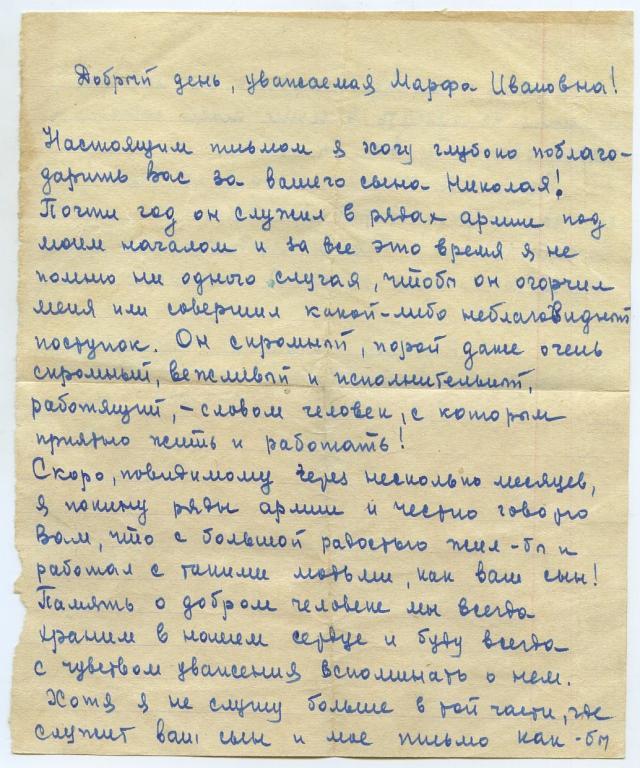 Добрый день, уважаемая Марфа Ивановна!
Настоящим письмом я хочу глубоко поблаго-
дарить Вас за вашего сына Николая!
Почти год он служил в рядах армии под
моим началом и за все это время я не
помню ни одного случая, чтобы он огорчил
меня или совершил какой-либо неблаговидный
поступок. Он скромный, порой даже очень
скромный, вежливый и исполнительный,
работящий, – словом человек, с которым
приятно жить и работать!
Скоро, повидимому через несколько месяцев,
я покину ряды армии и честно говорю
Вам, что с большой радостью жил-бы и
работал с такими людьми, как ваш сын!
Память о добром человеке мы всегда
храним в нашем сердце и буду всегда
с чувством уважения вспоминать о нем.
Хотя я не служу больше в той части, где
служит ваш сын и мое письмо как-бы